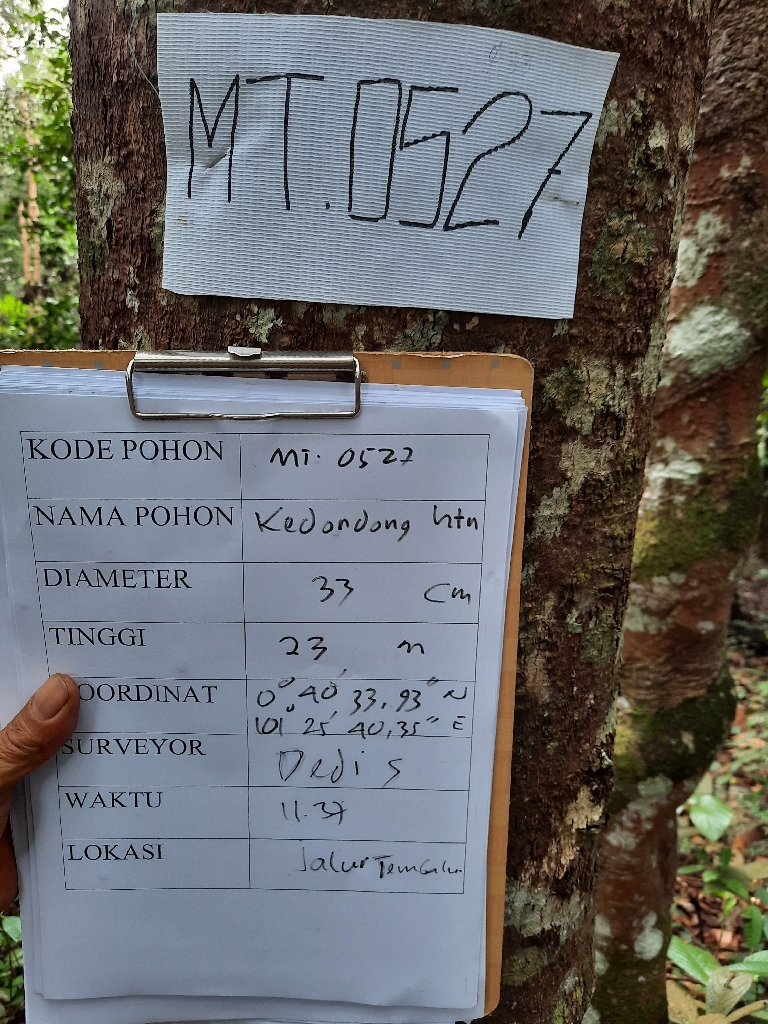 MT.0527
KODE POHON MT. 0527
NAMA POHON Kedondong htn
DIAMETER 33 Cm
TINGGI 23 m
OORDINAT 0° 40' 33,93" N
101 25' 40,35" E
SURVEYOR Dedi S
WAKTU 11.37
LOKASI Jalur